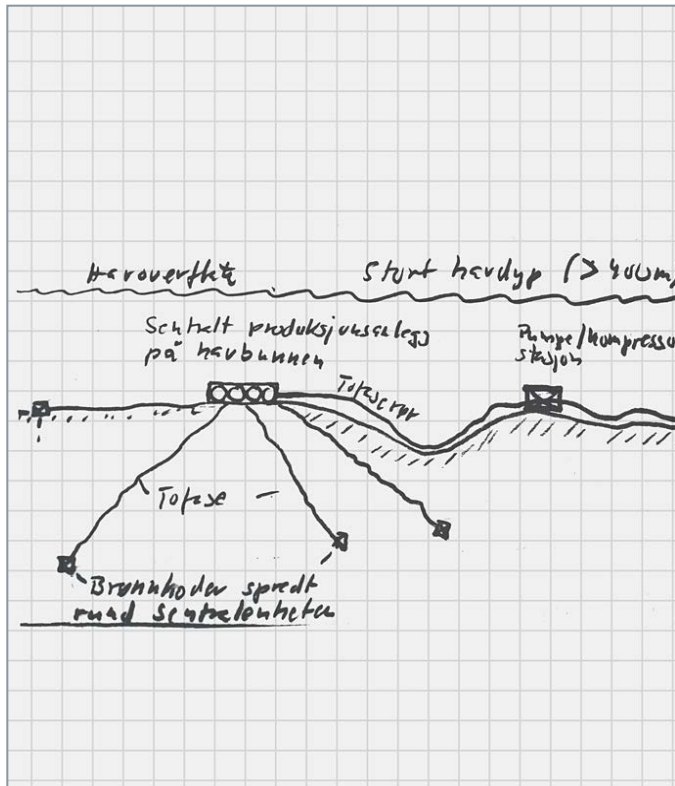 Havoverflate
Stort havdyp (> 400m
Sentralt produksjonsanlegg
på havbunnen
Pumpe/kompresso
stasjon
Tofaserør
Tofase
Brønnhoder spredt
rund sentralenheten